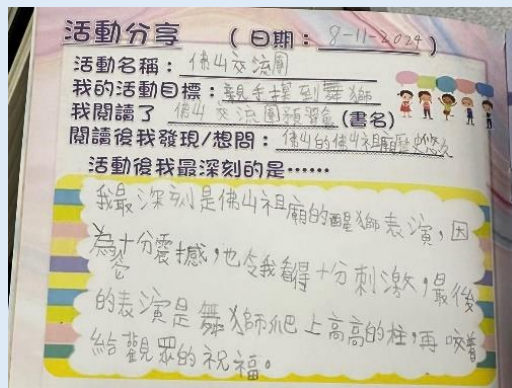 活動分享 （日期：8-11-2024）
活動名稱：佛山交流團
我的活動目標：親手摸到舞獅
我閱讀了 佛山交流團預習冊 (書名)
閱讀後我發現/想問：佛山的佛山祖廟歷史悠久
活動後我最深刻的是……
我最深刻是佛山祖廟的醒獅表演，因
為它十分震撼，也令我看得十分刺激，最後
的表演是舞獅爬上高高的柱，再咬着
給觀眾的祝福。